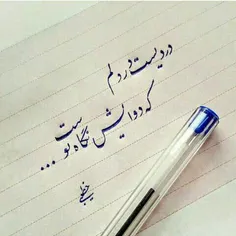 دردیست در دلم
که دوایش نگاه توست...